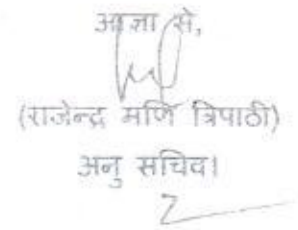 आज्ञा से,
(राजेन्द्र मणि त्रिपाठी)
अनु सचिव।